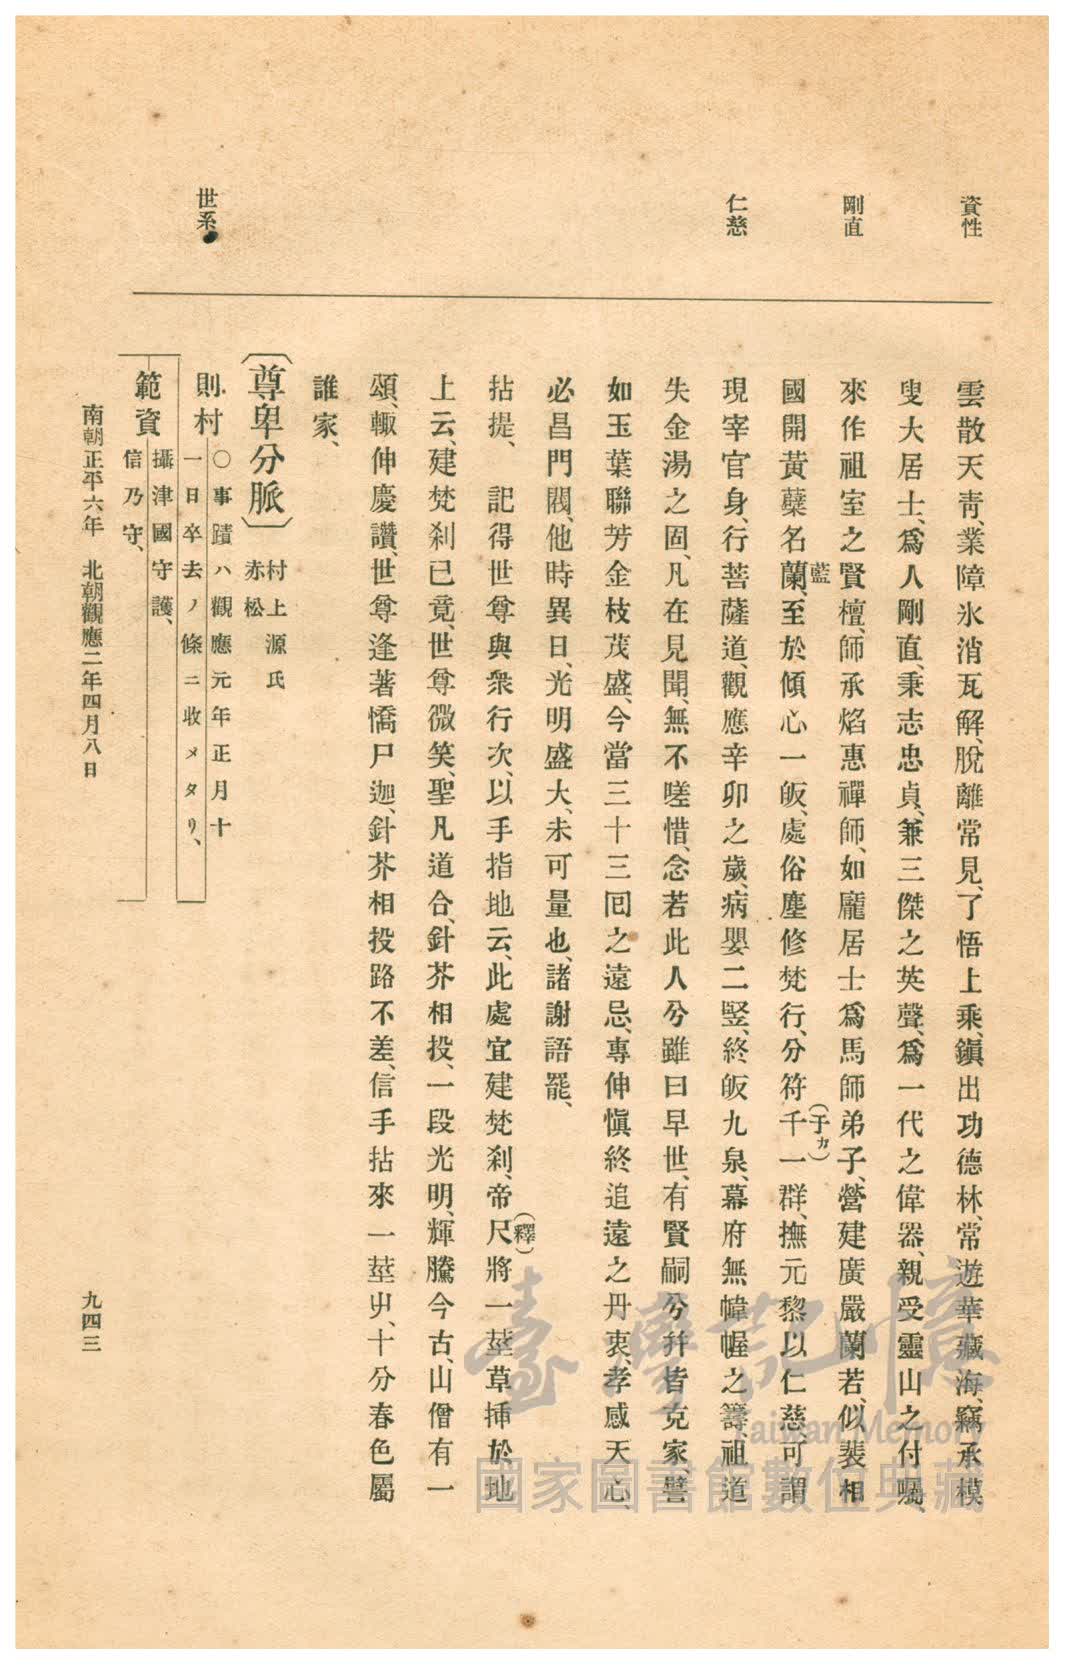 資性
剛直
仁慈
世系
雲散天靑、業障氷消瓦解、脫離常見、了悟上乘、鎭出功德林、常遊華藏海、竊承模
叟大居士、爲人剛直、秉志忠貞、兼三傑之英聲、爲一代之偉器、親受靈山之付囑、
來作祖室之賢檀、師承焰惠禪師、如龐居士爲馬師弟子、營建廣嚴蘭若、似裴相
國開黃蘗名蘭、至於傾心一皈、處俗塵修梵行、分符千一群、撫元黎以仁慈、可謂
藍
(于カ)
現宰官身、行菩薩道、觀應辛卯之歲、病嬰二竪、終皈九泉、幕府無幃幄之籌、祖道
失金湯之固、凡在見聞、無不嗟惜、念若此人兮雖曰早世、有賢嗣兮幷皆克家、譬
如玉葉聯芳金枝茂盛、今當三十三囘之遠忌、專伸愼終追遠之丹衷、孝感天心、
必昌門閥、他時異日、光明盛大、未可量也、諸謝語罷、
拈提、 記得世尊與衆行次、以手指地云、此處宜建梵刹、帝尺將一莖草揷於地
(釋)
上云、建梵刹已竟、世尊微笑、聖凡道合、針芥相投、一段光明、輝騰今古、山僧有一
頌、輙伸慶讚、世尊逢著憍尸迦、針芥相投路不差、信手拈來一莖屮、十分春色屬
誰家、
〔尊卑分脈〕 村上源氏
赤松
則村 ○事蹟ハ觀應元年正月十
一日卒去ノ條ニ收メタリ、
範資 攝津國守護、
信乃守、
南朝正平六年 北朝觀應二年四月八日
九四三
臺灣記憶
Taiwan Memory
國家圖書館數位典藏